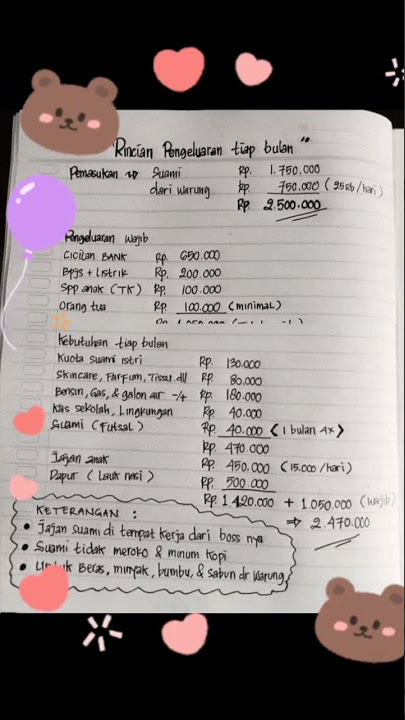 Rincian Pengeluaran tiap bulan "
Pemasukan → Suami Rp. 1.750.000
dari warung Rp 750.000 (25rb/hari)
Rp 2.500.000
Pengeluaran Wajib
Cicilan BANK Rp 650.000
Bpjs + Listrik Rp. 200.000
Spp anak (TK) Rp 100.000
Orang tua Rp 100.000 (minimal)
Kebutuhan tiap bulan
Kuota suami istri Rp. 130.000
Skincare, Parfum, Tissu dll Rp 80.000
Bensin, Gas, & galon air -/+ Rp 180.000
Kas sekolah, Lingkungan Rp 40.000
Suami (Futsal) Rp 40.000 <1 bulan 4x>
Rp 470.000
Jajan anak Rp 450.000 (15.000/hari)
Dapur (Lauk nasi) Rp 500.000
Rp 1.420.000 + 1.050.000 (wajib)
⇒ 2.470.000
KETERANGAN :
• Jajan suami di tempat kerja dari boss nya
• Suami tidak meroko & minum kopi
• Untuk Beras, minyak, bumbu, & sabun dr warung